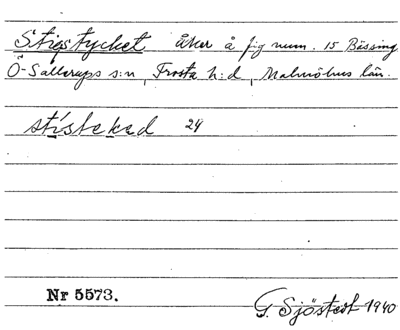 Stigstycket åker å fig num. 15 Bässing
Ö-Sallerups s:n, Frosta h:d, Malmöhus län.
stístekad 24
Nr 5573.
G. Sjöstedt 1940